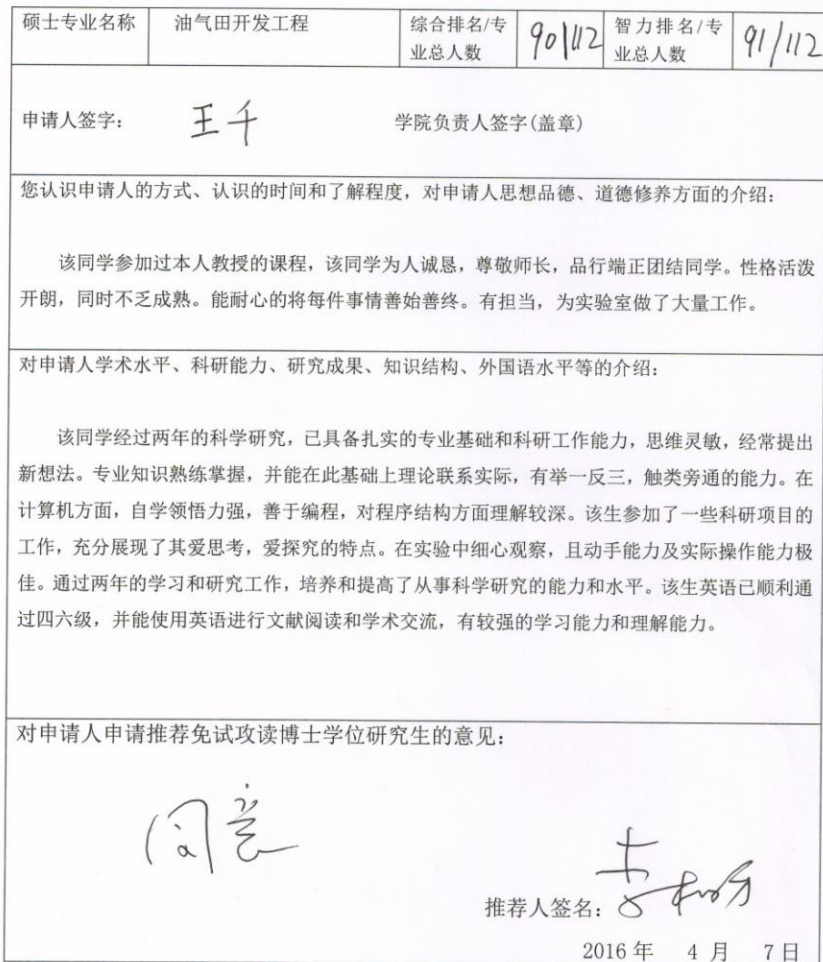 硕士专业名称 油气田开发工程 综合排名/专业总人数 90/112 智力排名/专业总人数 91/112
申请人签字： 王千 学院负责人签字(盖章)
您认识申请人的方式、认识的时间和了解程度，对申请人思想品德、道德修养方面的介绍：
该同学参加过本人教授的课程，该同学为人诚恳，尊敬师长，品行端正团结同学。性格活泼
开朗，同时不乏成熟。能耐心的将每件事情善始善终。有担当，为实验室做了大量工作。
对申请人学术水平、科研能力、研究成果、知识结构、外国语水平等的介绍：
该同学经过两年的科学研究，已具备扎实的专业基础和科研工作能力，思维灵敏，经常提出
新想法。专业知识熟练掌握，并能在此基础上理论联系实际，有举一反三，触类旁通的能力。在
计算机方面，自学领悟力强，善于编程，对程序结构方面理解较深。该生参加了一些科研项目的
工作，充分展现了其爱思考，爱探究的特点。在实验中细心观察，且动手能力及实际操作能力极
佳。通过两年的学习和研究工作，培养和提高了从事科学研究的能力和水平。该生英语已顺利通
过四六级，并能使用英语进行文献阅读和学术交流，有较强的学习能力和理解能力。
对申请人申请推荐免试攻读博士学位研究生的意见：
同意
推荐人签名：
2016 年 4 月 7 日